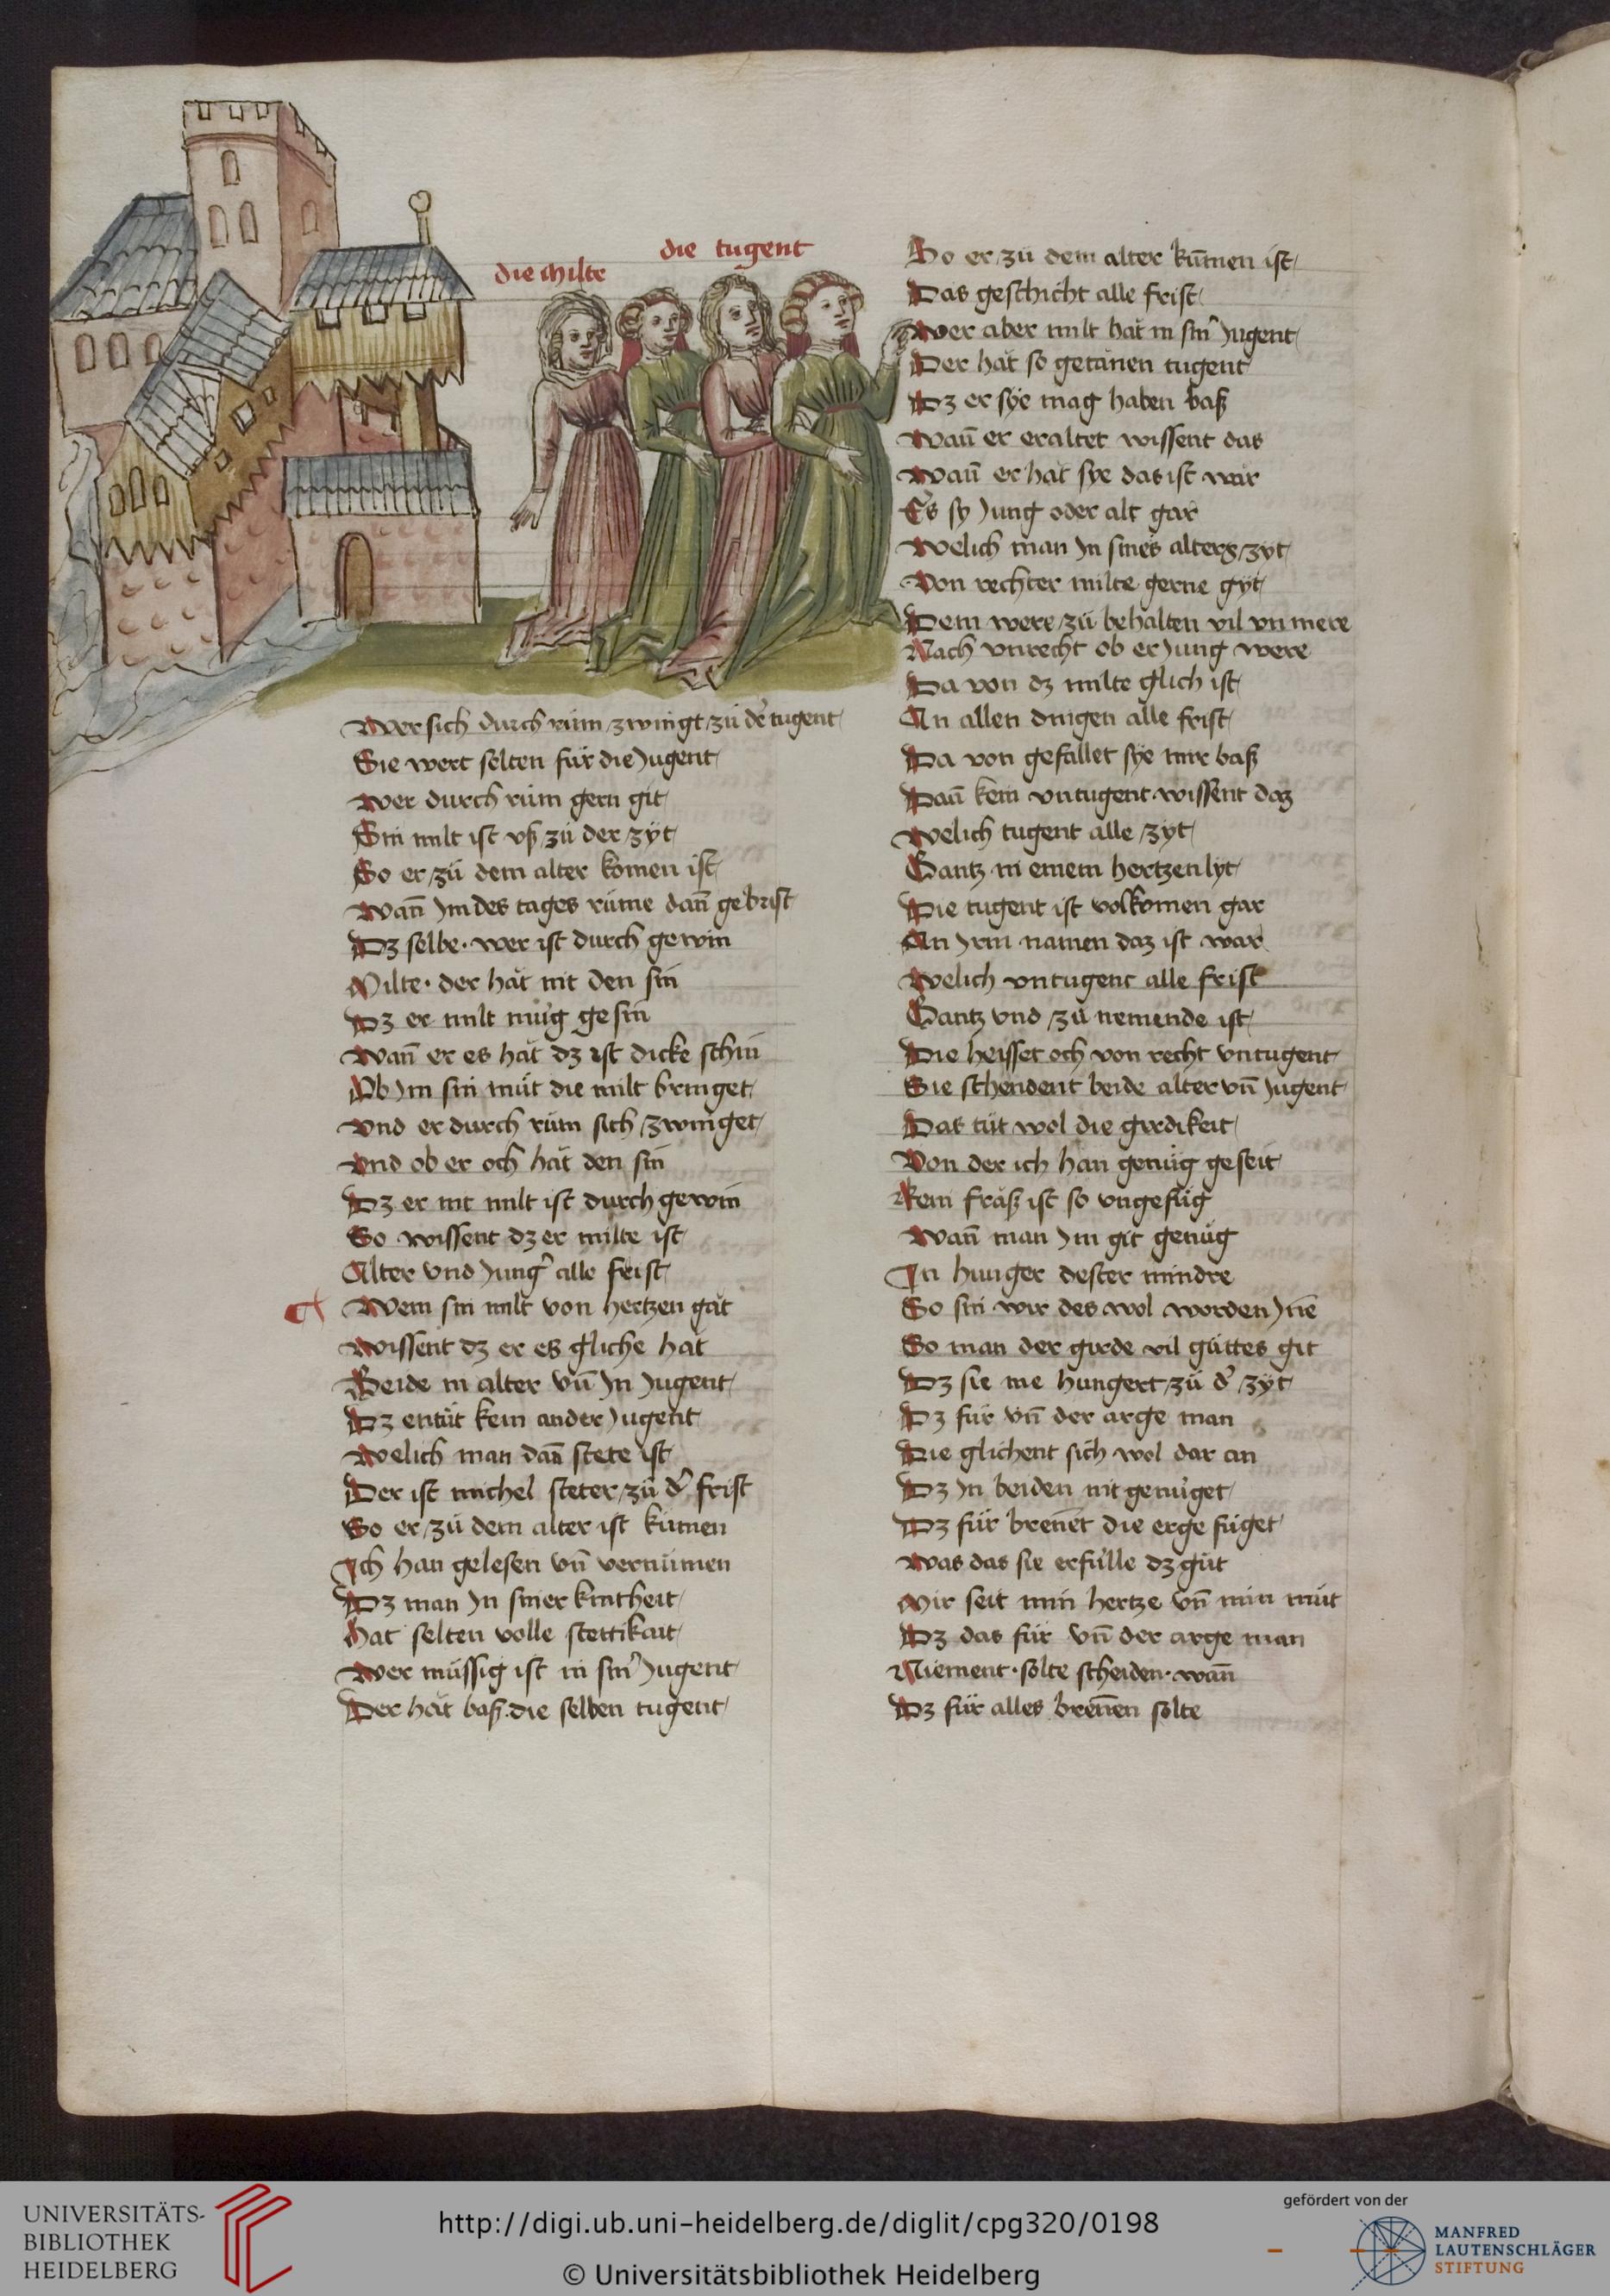 die milte
die tugent
Wer sich durch rům zwingt zů d̉ tugent
Sie wert selten für die Jugent
Wer durch rům gern git
Sin milt ist vß zů der zÿt
So er zů dem alter komen ist
Wañ Im des tages růme dañ gebrist
Dz selbe · wer ist durch gewin
Milte · der hăt nit den sin
Dz er milt mu̇g gesin
Wañ er es hăt dz ist dicke schin
Ob Im sin můt die milt bringet
Vnd er durch rům sich zwinget
Vnd ob er och hăt den sin
Dz er nit milt ist durch gewin
So wissent dz er milte ist
Alter vnd Jung̉ alle frist
Wem sin milt von hertzen găt
Wissent dz er es gliche hăt
Beide in alter vñ In Jugent
Dz entůt kein ander Jugent
Welich man dañ stete ist
Der ist michel steter zů d̉ frist
So er zů dem alter ist kumen
Ich han gelesen vñ vernumen
Dz man In siner kintheit
Hat selten volle stettikait
Wer müssig ist in sin̉ Jugent
Der hăt baß die selben tugent
So er zů dem alter ku̅men ist
Das geschicht alle frist
Wer aber milt hăt in sin̉ Jugent
Der hăt so getănen tugent
Dz er sÿe mag haben baß
Wañ er eraltet wissent das
Wañ er hăt sÿe das ist wăr
Es sy Jung oder alt găr
Welich man In sines alters zyt
Von rechter milte gerne gÿt
Dem were zů behalten vil vn mere
Nach vnrecht ob er Jung were
Da von dz milte glich ist
An allen dingen alle frist
Da von gefallet sÿe mir baß
Dañ kein vntugent wissent daz
Welich tugent alle zyt
Gantz in einem hertzen lyt
Die tugent ist volkomen gar
An Irm namen daz ist war
Welich vntugent alle frist
Gantz vnd zů nemende ist
Die heisset och von recht vntugent
Sie schendent beide alter vñ Jugent
Das tůt wol die girdikeit
Von der ich han genůg geseit
Kein fräß ist so vngefůg
Wañ man Im git genůg
In hunger dester mindre
So sin wir des wol worden Ine
So man der girde vil gůttes git
Dz sie me hungert zů d̉ zÿt
Dz für vñ der arge man
Die glichent sich wol dar an
Dz In beiden nit genu̇get
Dz für breñet die erge füget
Was das sie erfülle dz gůt
Mir seit min hertze vñ min můt
Dz das für vñ der arge man
Niement · solte scheiden · wañ
Dz für alles breñen solte
UNIVERSITÄTS-
BIBLIOTHEK
HEIDELBERG
http://digi.ub.uni-heidelberg.de/diglit/cpg320/0198
© Universitätsbibliothek Heidelberg
gefördert von der
MANFRED
LAUTENSCHLÄGER
STIFTUNG